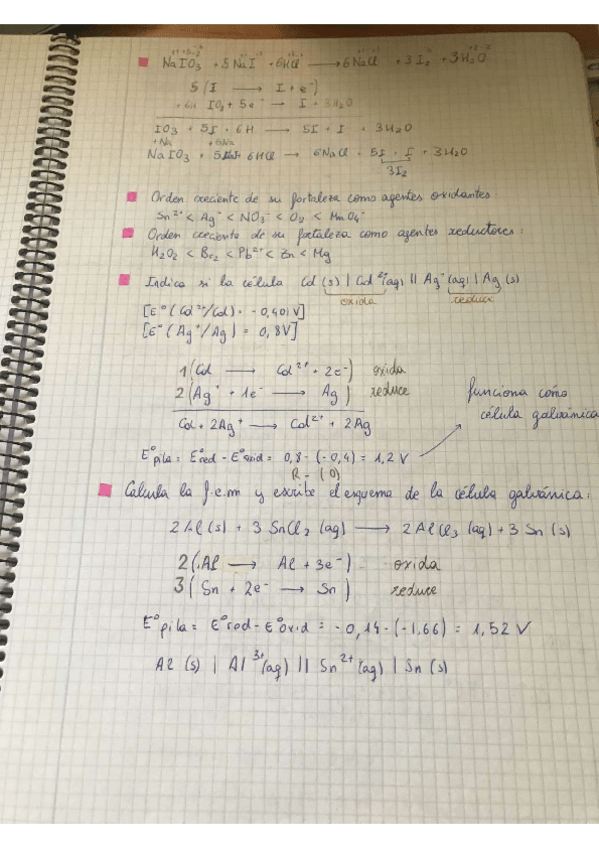 NaIO3 + 5NaI + 6HCl → 6NaCl + 3I2 + 3H2O
5 (I → I + e-)
+6H IO3 + 5e- → I + 3H2O
IO3 + 5I + 6H → 5I + I + 3H2O
+Na +5Na
NaIO3 + 5NaI + 6HCl → 6NaCl + 5I + I + 3H2O
3I2
Orden creciente de su fortaleza como agentes oxidantes
Sn2+ < Ag+ < NO3- < O2 < MnO4-
Orden creciente de su fortaleza como agentes reductores:
H2O2 < Br2 < Pb2+ < Zn < Mg
Indica si la célula Cd (s) | Cd2+(aq) || Ag+ (aq) | Ag (s)
oxida reduce
[E° (Cd2+/Cd) = -0,401V]
[E° (Ag+/Ag) = 0,8V]
1 (Cd → Cd2+ + 2e-) oxida
2 (Ag+ + 1e- → Ag) reduce
Cd + 2Ag+ → Cd2+ + 2Ag
funciona como
célula galvánica
E°pila = E°red - E°oxid = 0,8 - (-0,4) = 1,2 V
R - (O)
Calcula la f.e.m y escribe el esquema de la célula galvánica:
2Al(s) + 3 SnCl2 (aq) → 2AlCl3 (aq) + 3 Sn (s)
2 (Al → Al + 3e-) oxida
3 (Sn + 2e- → Sn) reduce
E°pila = E°red - E°oxid = -0,14 - (-1,66) = 1,52 V
Al (s) | Al3+(aq) || Sn2+(aq) | Sn (s)